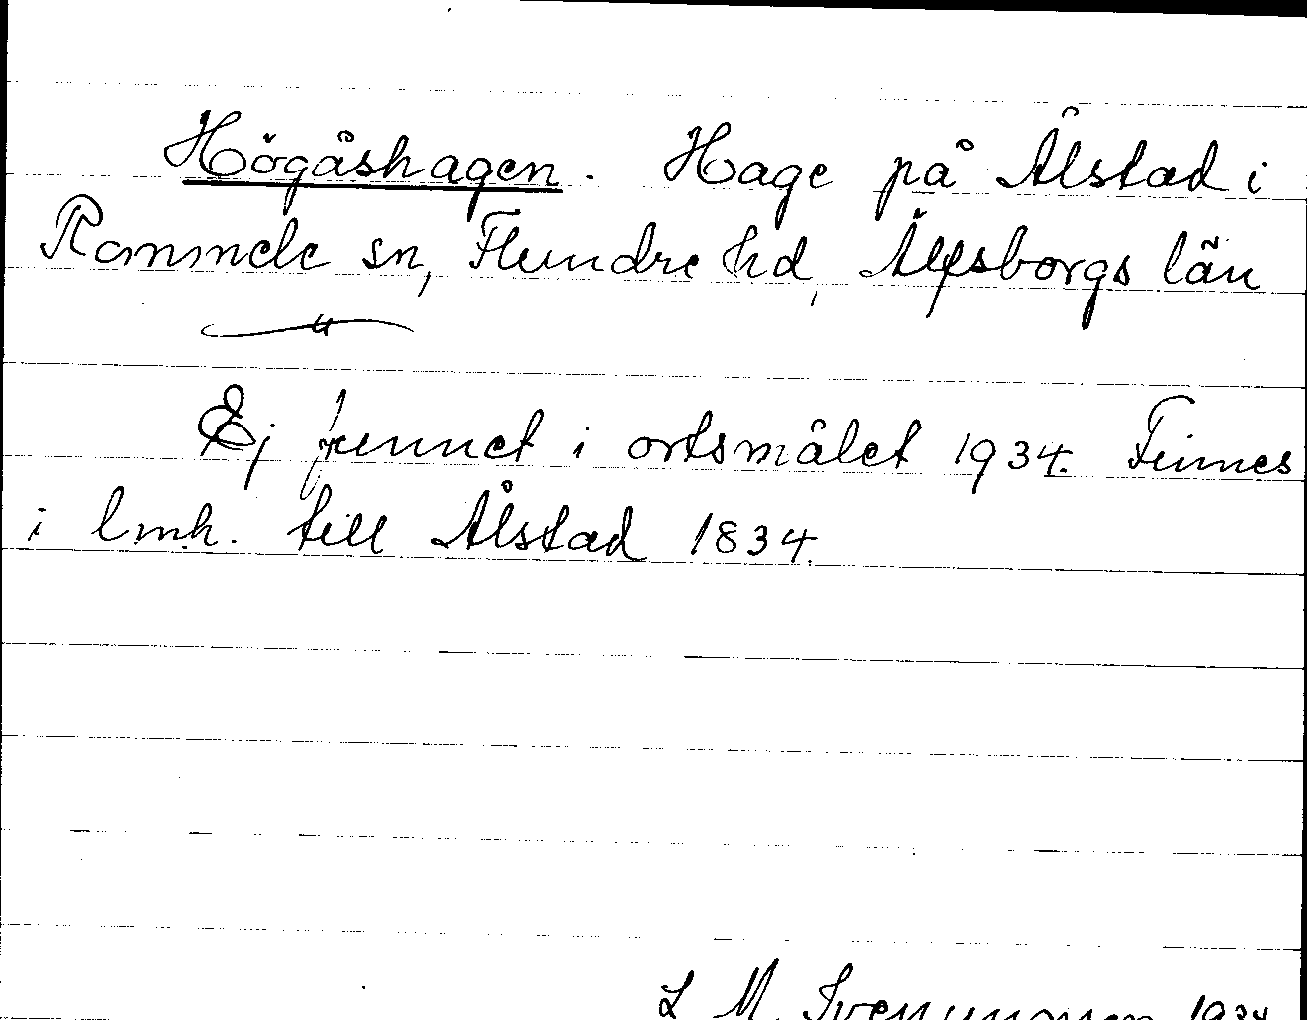 Högåshagen. Hage på Ålstad i
Rommele sn, Flundre hd, Älfsborgs län
Ej funnet i ortsmålet 1934. Finnes
i lmh. till Ålstad 1834.
L M. Svenungson 1934